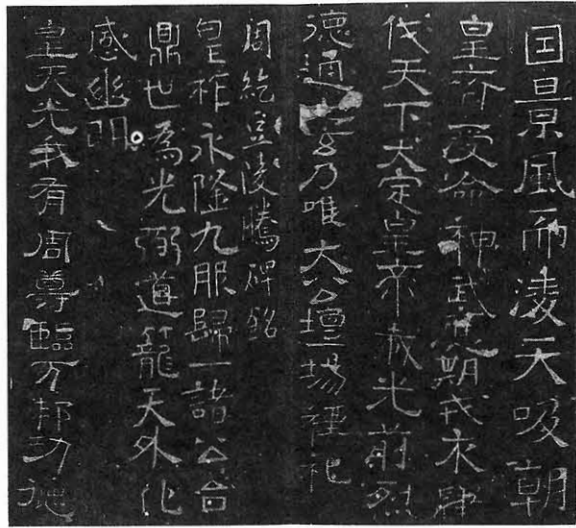 景風而淩天吸朝
皇帝受命神武應期戎衣肆
伐天下大定皇帝載光前烈
德通玄乃唯大公壇場禋祀
周紇豆陵騰碑銘
皇祚永隆九服歸一諸公台
鼎世為光弼道籠天外化
感幽明
皇天光我有周尊臨万邦功德